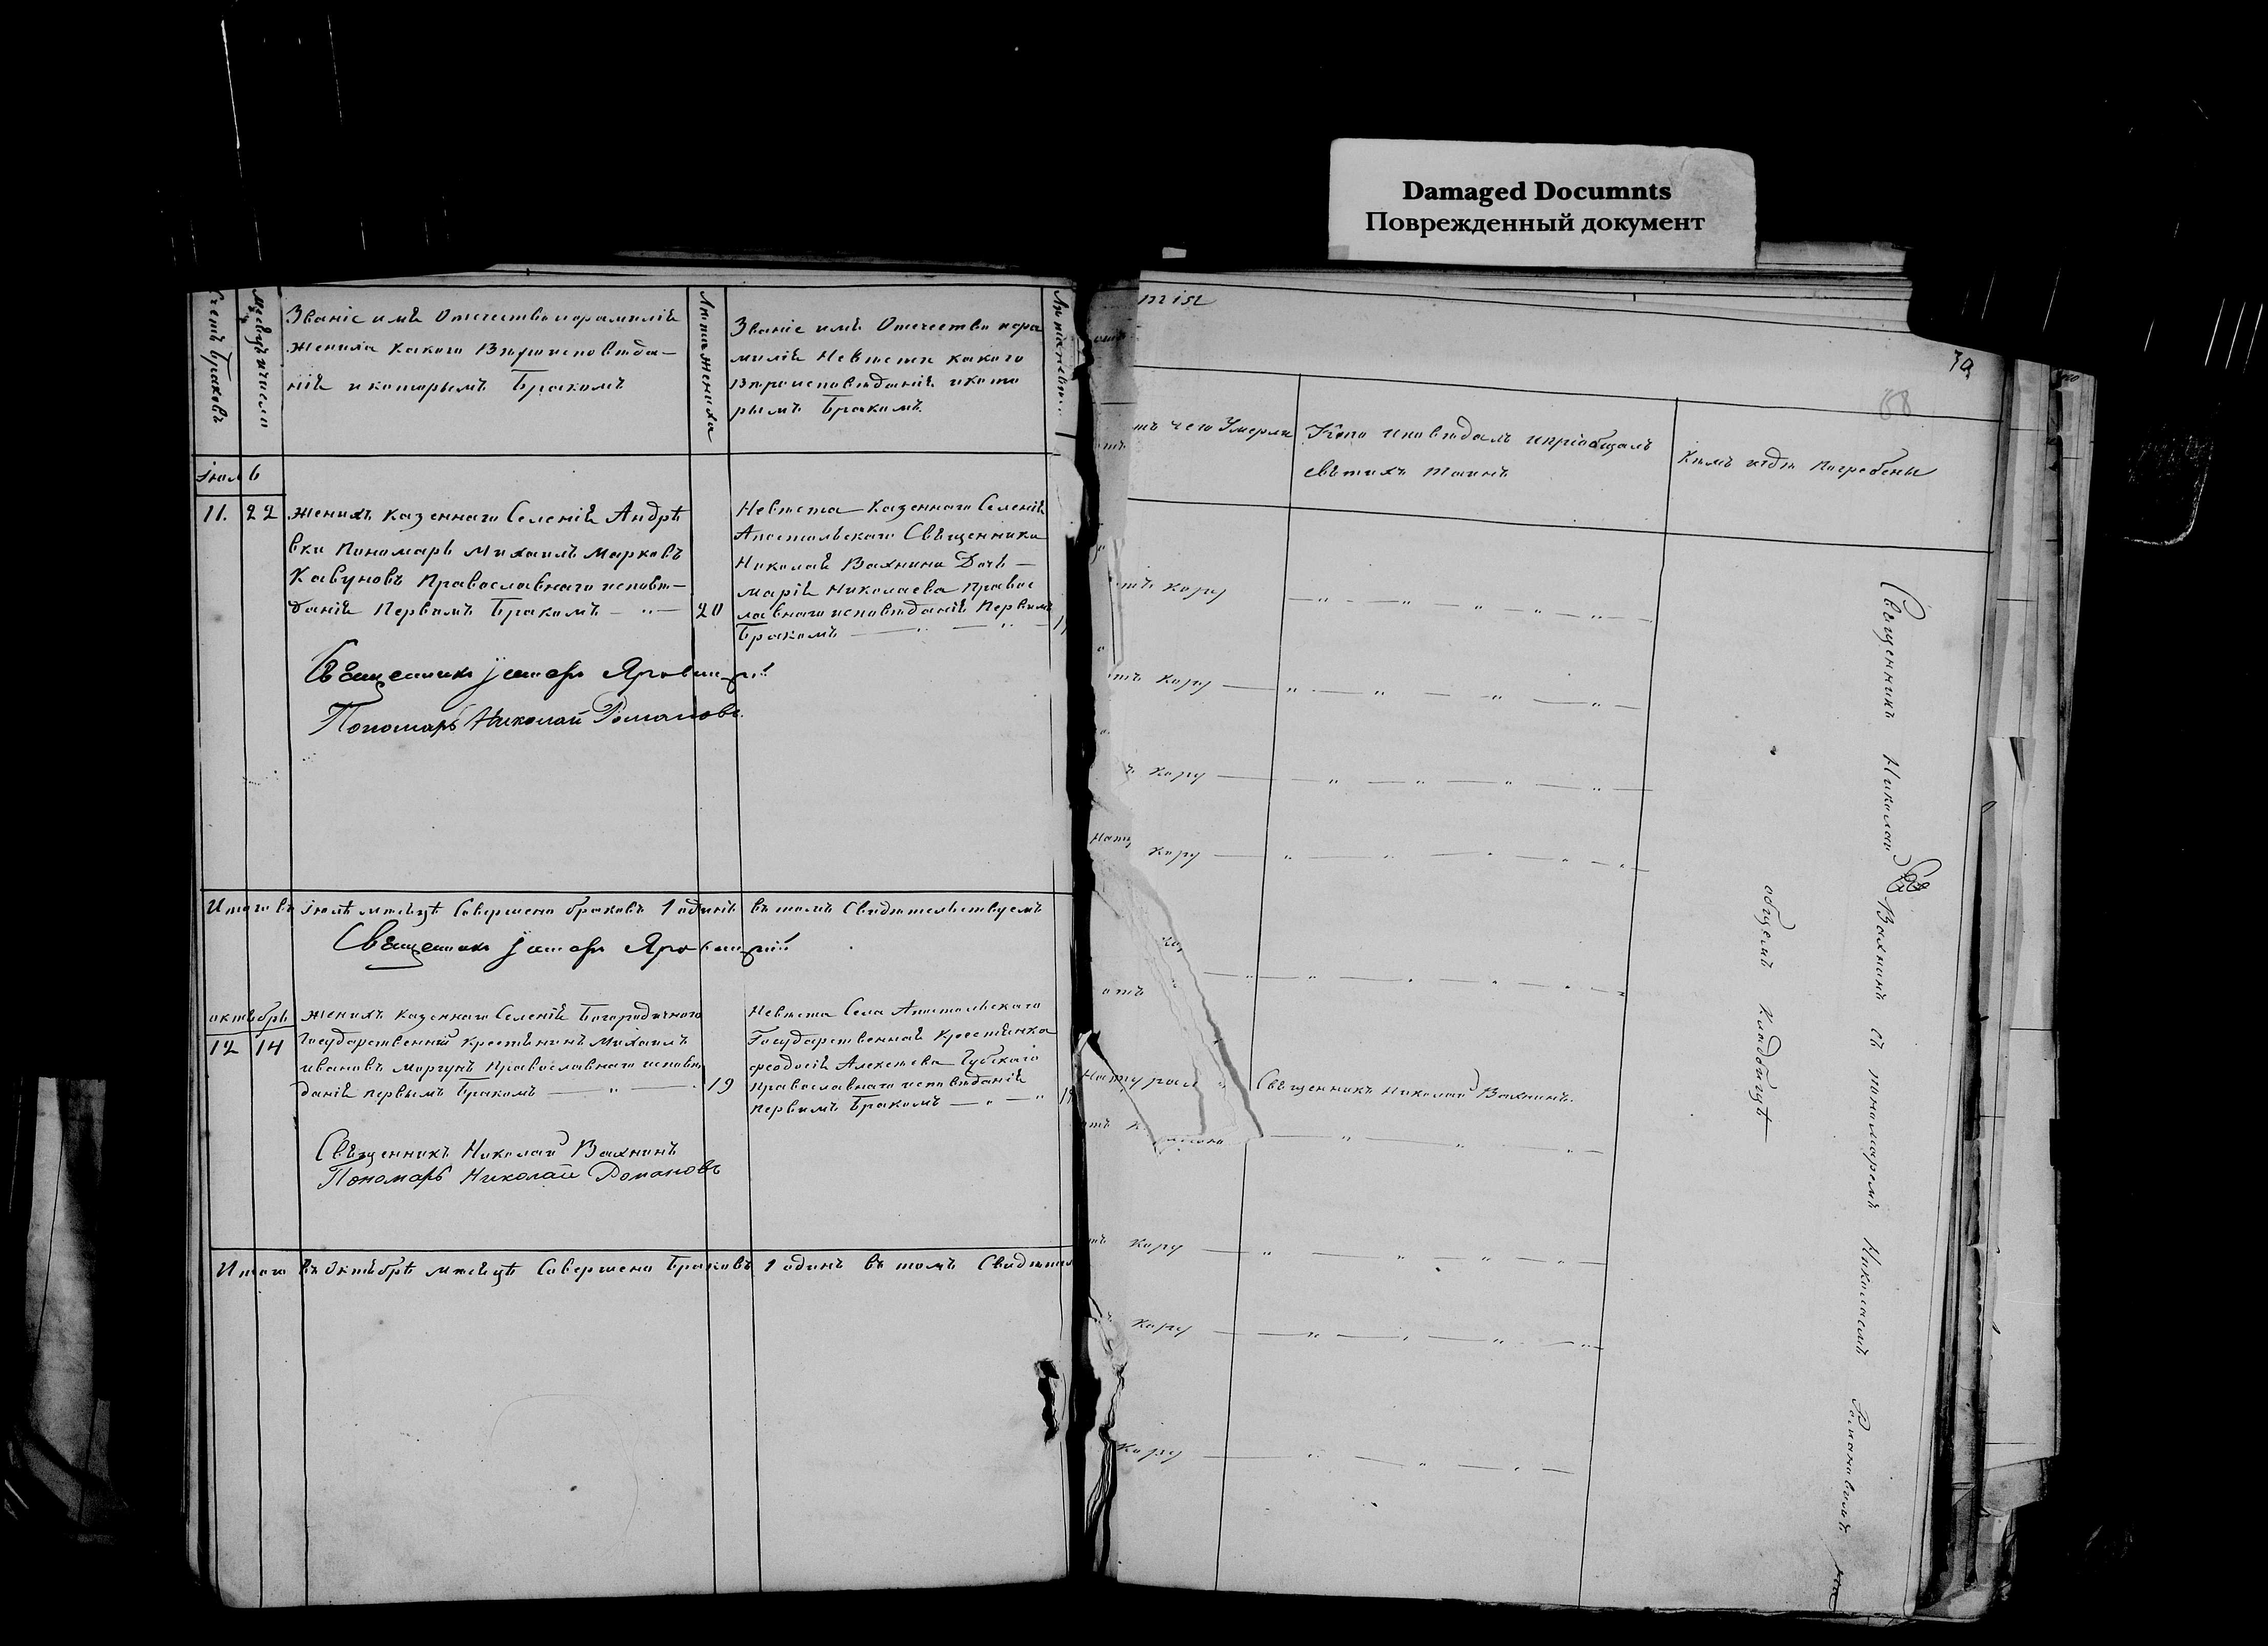 Damaged Documnts
Поврежденный документ
Счетъ браковъ
Месяцъ и число
Званіе имѣ Отечество и фамиліѣ
Жениха какого Вѣроисповѣда—
ніѣ и которымъ Бракомъ
Лѣта жениха
Званіе имѣ Отечество и фа
миліѣ Невѣсты какого
Вѣроисповѣданіѣ и кото
рымъ Бракомъ.
Іюль
11. 22
Женихъ казеннаго Селеніѣ Андрѣ
вки Пономарь Михаилъ Марковъ
Кавуновъ Православнаго исповѣ—
даніѣ Первымъ Бракомъ — „ —
20
Невѣста казеннаго Селеніѣ
Апостольскаго Свѣщенника
Николай Вахнина Дочь —
Маріѣ Николаева Правос
лавнаго исповѣданіѣ Первымъ
Бракомъ
Свещенникъ
Пономарь Николай Романовъ
Итого въ Іюлѣ мѣсѣцѣ Совершено браковъ 1 одинъ въ томъ Свидѣтельствуемъ
Свещенникъ
октѣбрь
12 14
Женихъ Казеннаго Селеніѣ Богородичного
Государственный Крестѣнинъ Михаилъ
Ивановъ Моргунъ Православнаго исповѣ
даніѣ первымъ Бракомъ — „ —
19
Невѣста Села Апостольскаго
Государственнаѣ Крестѣнка
Феодосіѣ Алексѣева Губскаго
Православнаго исповѣданіѣ
Первымъ Бракомъ — „ — „
Свѣщенникъ Николай Вахнинъ
Пономарь Николай Романовъ
Итого въ Октѣбрѣ мѣсѣцѣ Совершено Браковъ 1 одинъ въ томъ
30
чего Умерли
Кто исповѣдалъ и пріобщалъ
свѣтихъ таинъ
Кѣмъ и гдѣ погребены
кору
кору
кору
кору
отъ
Свѣщенникъ Николай Вахнинъ.
кору
кору
кору
Свѣщенникъ Николай Вахнинъ съ пономаремъ Николаемъ Романовымъ на
общемъ кладбищѣ